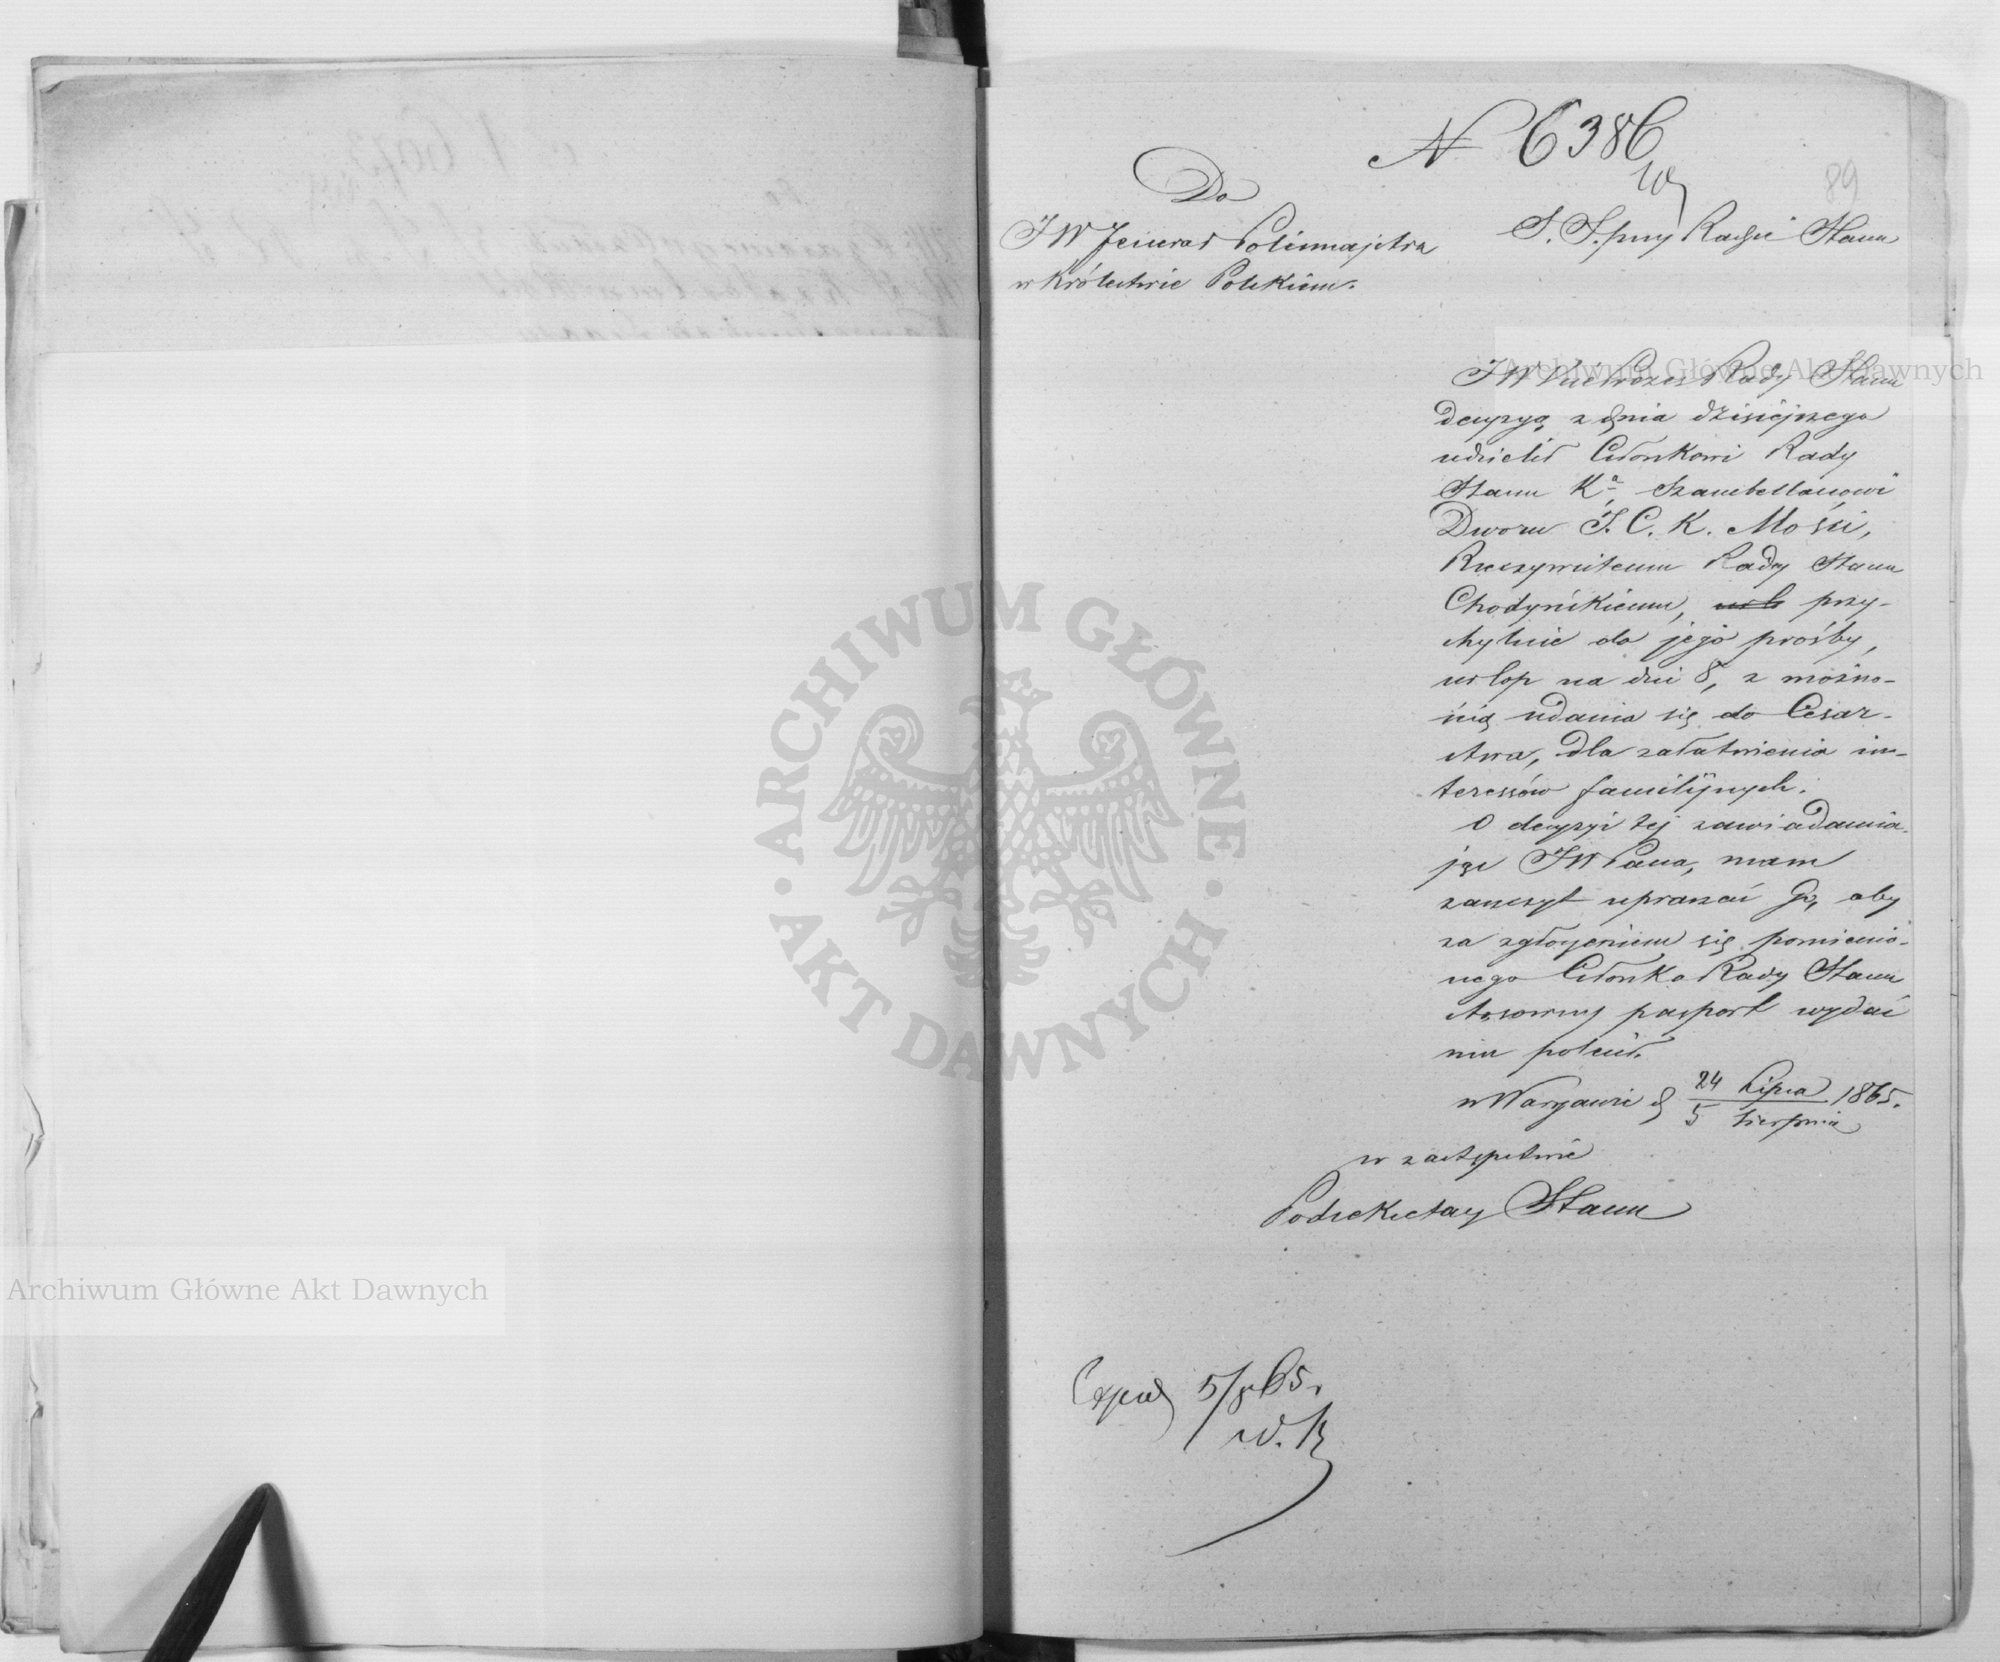 N 6386
89
Do
JW Jenerał Policmajstra
w Królestwie Polskiem.
S. S. przy Radzie Stanu
JW Vice Prezes Rady Stanu
decyzyą z dnia dzisiejszego
udzielił Członkowi Rady
Stanu Kr, Szambellanowi
Dworu J. C. K. Mości,
Rzeczywistemu Radcy Stanu
Chodyńskiemu, przy-
chylnie do jego prośby,
urlop na dni 8, z możno-
ścią udania się do Cesar-
stwa, dla załatwienia in-
teressów familijnych.
O decyzyi tej zawiadamia-
jąc JW Pana, mam
zaszczyt upraszać Go, aby
za zgłoszeniem się pomienio-
nego Członka Rady Stanu
stosowny pasport wydać
mu polecił.
w Warszawie d 24 Lipca / 5 Sierpnia 1865.
w zastępstwie
Podsekretarz Stanu
Exped 5/8 65.
Archiwum Główne Akt Dawnych
Archiwum Główne Akt Dawnych
ARCHIWUM GŁÓWNE
AKT DAWNYCH